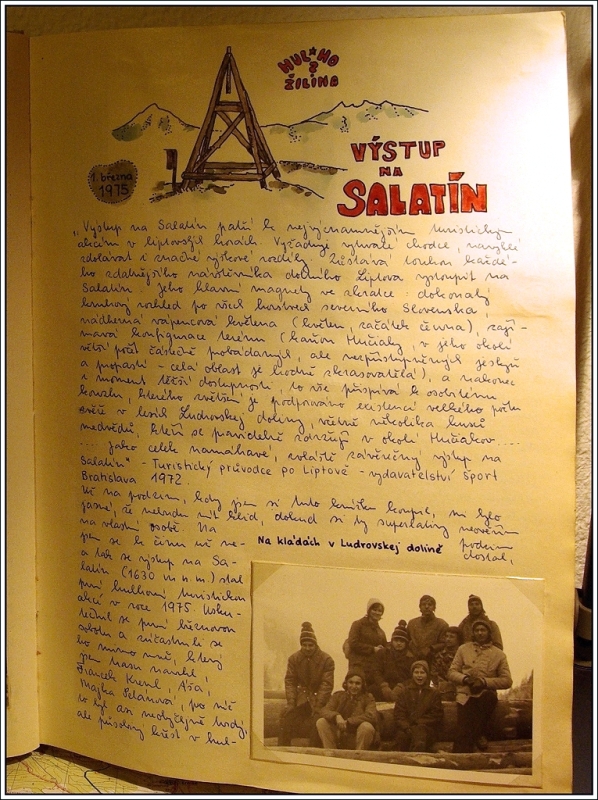 HUL★HO
?
ŽILINA
1. března
1975
VÝSTUP
NA
SALATÍN
„Výstup na Salatín patří k nejvýznamnějším turistickým
akcím v liptovských horách. Vyžaduje vytrvalé chodce, navyklé
zdolávat i značné výškové rozdíly. Zůstává touhou každé-
ho zdatnějšího návštěvníka dolního Liptova vystoupit na
Salatín. Jeho hlavní magnety ve zkratce: dokonalý
kruhový rozhled po všech horstvech severního Slovenska,
nádherná vápencová květena (květen, začátek června), zají-
mavá konfigurace terénu (kaňon Hučiaky, v jeho okolí
větší počet částečně probádaných, ale nezpřístupněných jeskyň
a propastí - celá oblast je hodně zkrasovatělá), a nakonec
i moment těžší dostupnosti, to vše přispívá k osobitému
kouzlu, kterého zvětšení je podporováno existencí velkého počtu
zvěře v lesích Ludrovskej doliny, včetně několika kusů
medvědů, kteří se pravidelně zdržují v okolí Hučiakov....
.... jako celek namáhavé, zvláště závěrečný výstup na
Salatín" - Turistický průvodce po Liptově - vydavatelství Šport
Bratislava 1972.
Už na podzim, kdy jsem si tuto knížku koupil, mi bylo
jasné, že nebudu mít klid, dokud si ty superlativy neověřím
na vlastní osobě. Na podzim
jsem se k činu už ne- dostal,
Na kládách v Ludrovskej dolině
a tak se výstup na Sa-
latín (1630 m n. m.) stal
první hulhoví turistickou
akcí v roce 1975. Usku-
tečnil se první březnovou
sobotu a zúčastnili se
ho mimo mně, který
jsem trasu navrhl,
Francek Kreml, Áťa,
Majka
to byl asi neobyčejně tvrdý,
ale působivý křest v hul-